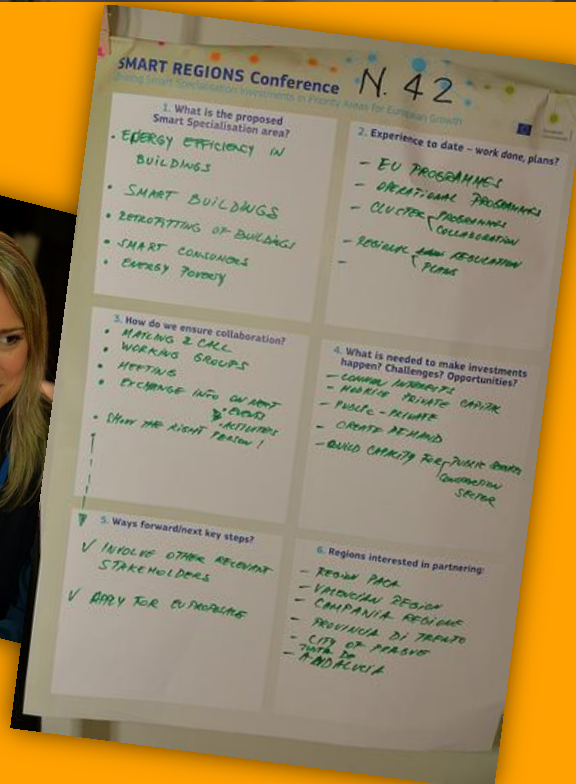 SMART REGIONS Conference
N. 42
Driving Smart Specialisation Investments in Priority Areas for European Growth
1. What is the proposed
Smart Specialisation area?
• ENERGY EFFICIENCY IN
BUILDINGS
• SMART BUILDINGS
• RETROFITTING OF BUILDINGS
• SMART CONSUMERS
• ENERGY POVERTY
2. Experience to date – work done, plans?
– EU PROGRAMMES
– OPERATIONAL PROGRAMMES
– CLUSTER PROGRAMMES
COLLABORATION
– REGIONAL REGULATION
PLANS
–
3. How do we ensure collaboration?
• MAILING & CALL
• WORKING GROUPS
• MEETING
• EXCHANGE INFO ON NEXT
• EVENTS
• ACTIVITIES
• SHOW THE RIGHT
PERSON!
4. What is needed to make investments
happen? Challenges? Opportunities?
– COMMON INTERESTS
– PRIVATE CAPITAL
– PUBLIC - PRIVATE
– CREATE DEMAND
– BUILD CAPACITY FOR PUBLIC
CONSTRUCTION
SECTOR
5. Ways forward/next key steps?
✓ INVOLVE OTHER RELEVANT
STAKEHOLDERS
✓ APPLY FOR EU PROPOSALS
6. Regions interested in partnering:
– REGION PACA
– VALENCIAN REGION
– CAMPANIA REGIONE
– PROVINCIA DI TRENTO
– CITY OF PRAGUE
– JUNTA DE
ANDALUCIA